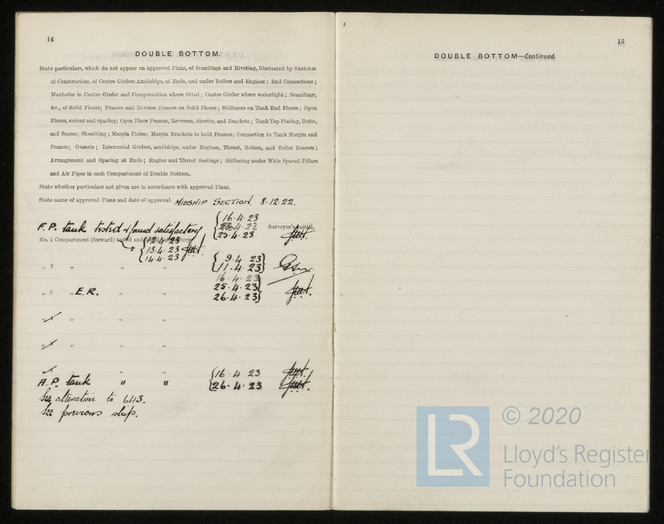 14
DOUBLE BOTTOM.
State particulars, which do not appear on approved Plans, of Scantlings and Riveting, illustrated by Sketches
of Construction, of Centre Girders Amidships, at Ends, and under Boilers and Engines; End Connections;
Manholes in Centre Girder and Compensation where fitted; Centre Girder where watertight; Scantlings,
&c., of Solid Floors; Frames and Reverse Frames on Solid Floors; Stiffeners on Tank End Floors; Open
Floors, extent and spacing; Open Floor Frames, Reverses, Struts, and Brackets; Tank Top Plating, Butts,
and Seams; Sheathing; Margin Plates; Margin Brackets to hold Frames; Connection to Tank Margin and
Frames; Gussets; Intercostal Girders, amidships, under Engines, Thrust, Boilers, and Boiler Bearers;
Arrangement and Spacing at Ends; Engine and Thrust Seatings; Stiffening under Wide Spaced Pillars
and Air Pipes in each Compartment of Double Bottom.
State whether particulars not given are in accordance with approved Plans.
State name of approved Plans and date of approval. MIDSHIP SECTION 8.12.22.
16.4.23
F.P. tank tested & found satisfactory 23 Surveyor's Initial.
25.4.23
No. 1 Compartment (forward) tested and 12.4.23
13.4.23
14.4.23
„ 2 „ „ 9.4.23
11.4.23
16.4.23
„ 3 „ E.R. „ „ 25.4.23
26.4.23
„ „ „
„ „ „
16.4.23
A.P. tank " " 26.4.23
See alteration to 6113.
See previous ship.
15
DOUBLE BOTTOM—Continued.
LR © 2020
Lloyd's Register
Foundation